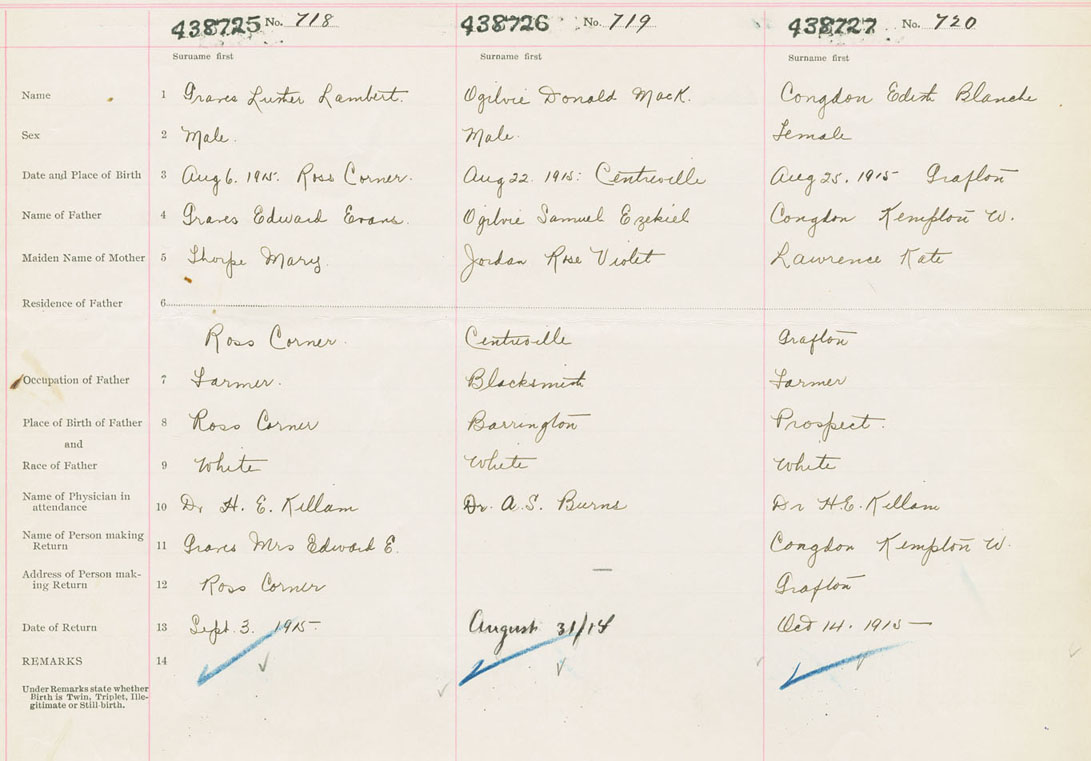 438725 No. 718 438726 No. 719 438727 No. 720
Surname first Surname first Surname first
Name 1 Graves Luther Lambert. Ogilvie Donald MacK. Congdon Edith Blanche
Sex 2 Male. Male. Female
Date and Place of Birth 3 Aug 6. 1915. Ross Corner. Aug 22. 1915. Centreville Aug 25. 1915 Grafton
Name of Father 4 Graves Edward Evans. Ogilvie Samuel Ezekiel Congdon Kempton W.
Maiden Name of Mother 5 Thorpe Mary. Jordan Rose Violet Lawrence Kate
Residence of Father 6
Ross Corner. Centreville Grafton
Occupation of Father 7 Farmer. Blacksmith Farmer
Place of Birth of Father 8 Ross Corner Barrington Prospect.
and
Race of Father 9 White White White
Name of Physician in
attendance 10 Dr H. E. Killam Dr. A. S. Burns Dr H. E. Killam
Name of Person making
Return 11 Graves Mrs Edward E. Congdon Kempton W.
Address of Person mak-
ing Return 12 Ross Corner — Grafton
Date of Return 13 Sept. 3. 1915- August 31/18 Oct 14. 1915—
REMARKS 14
Under Remarks state whether
Birth is Twin, Triplet, Ille-
gitimate or Still-birth.